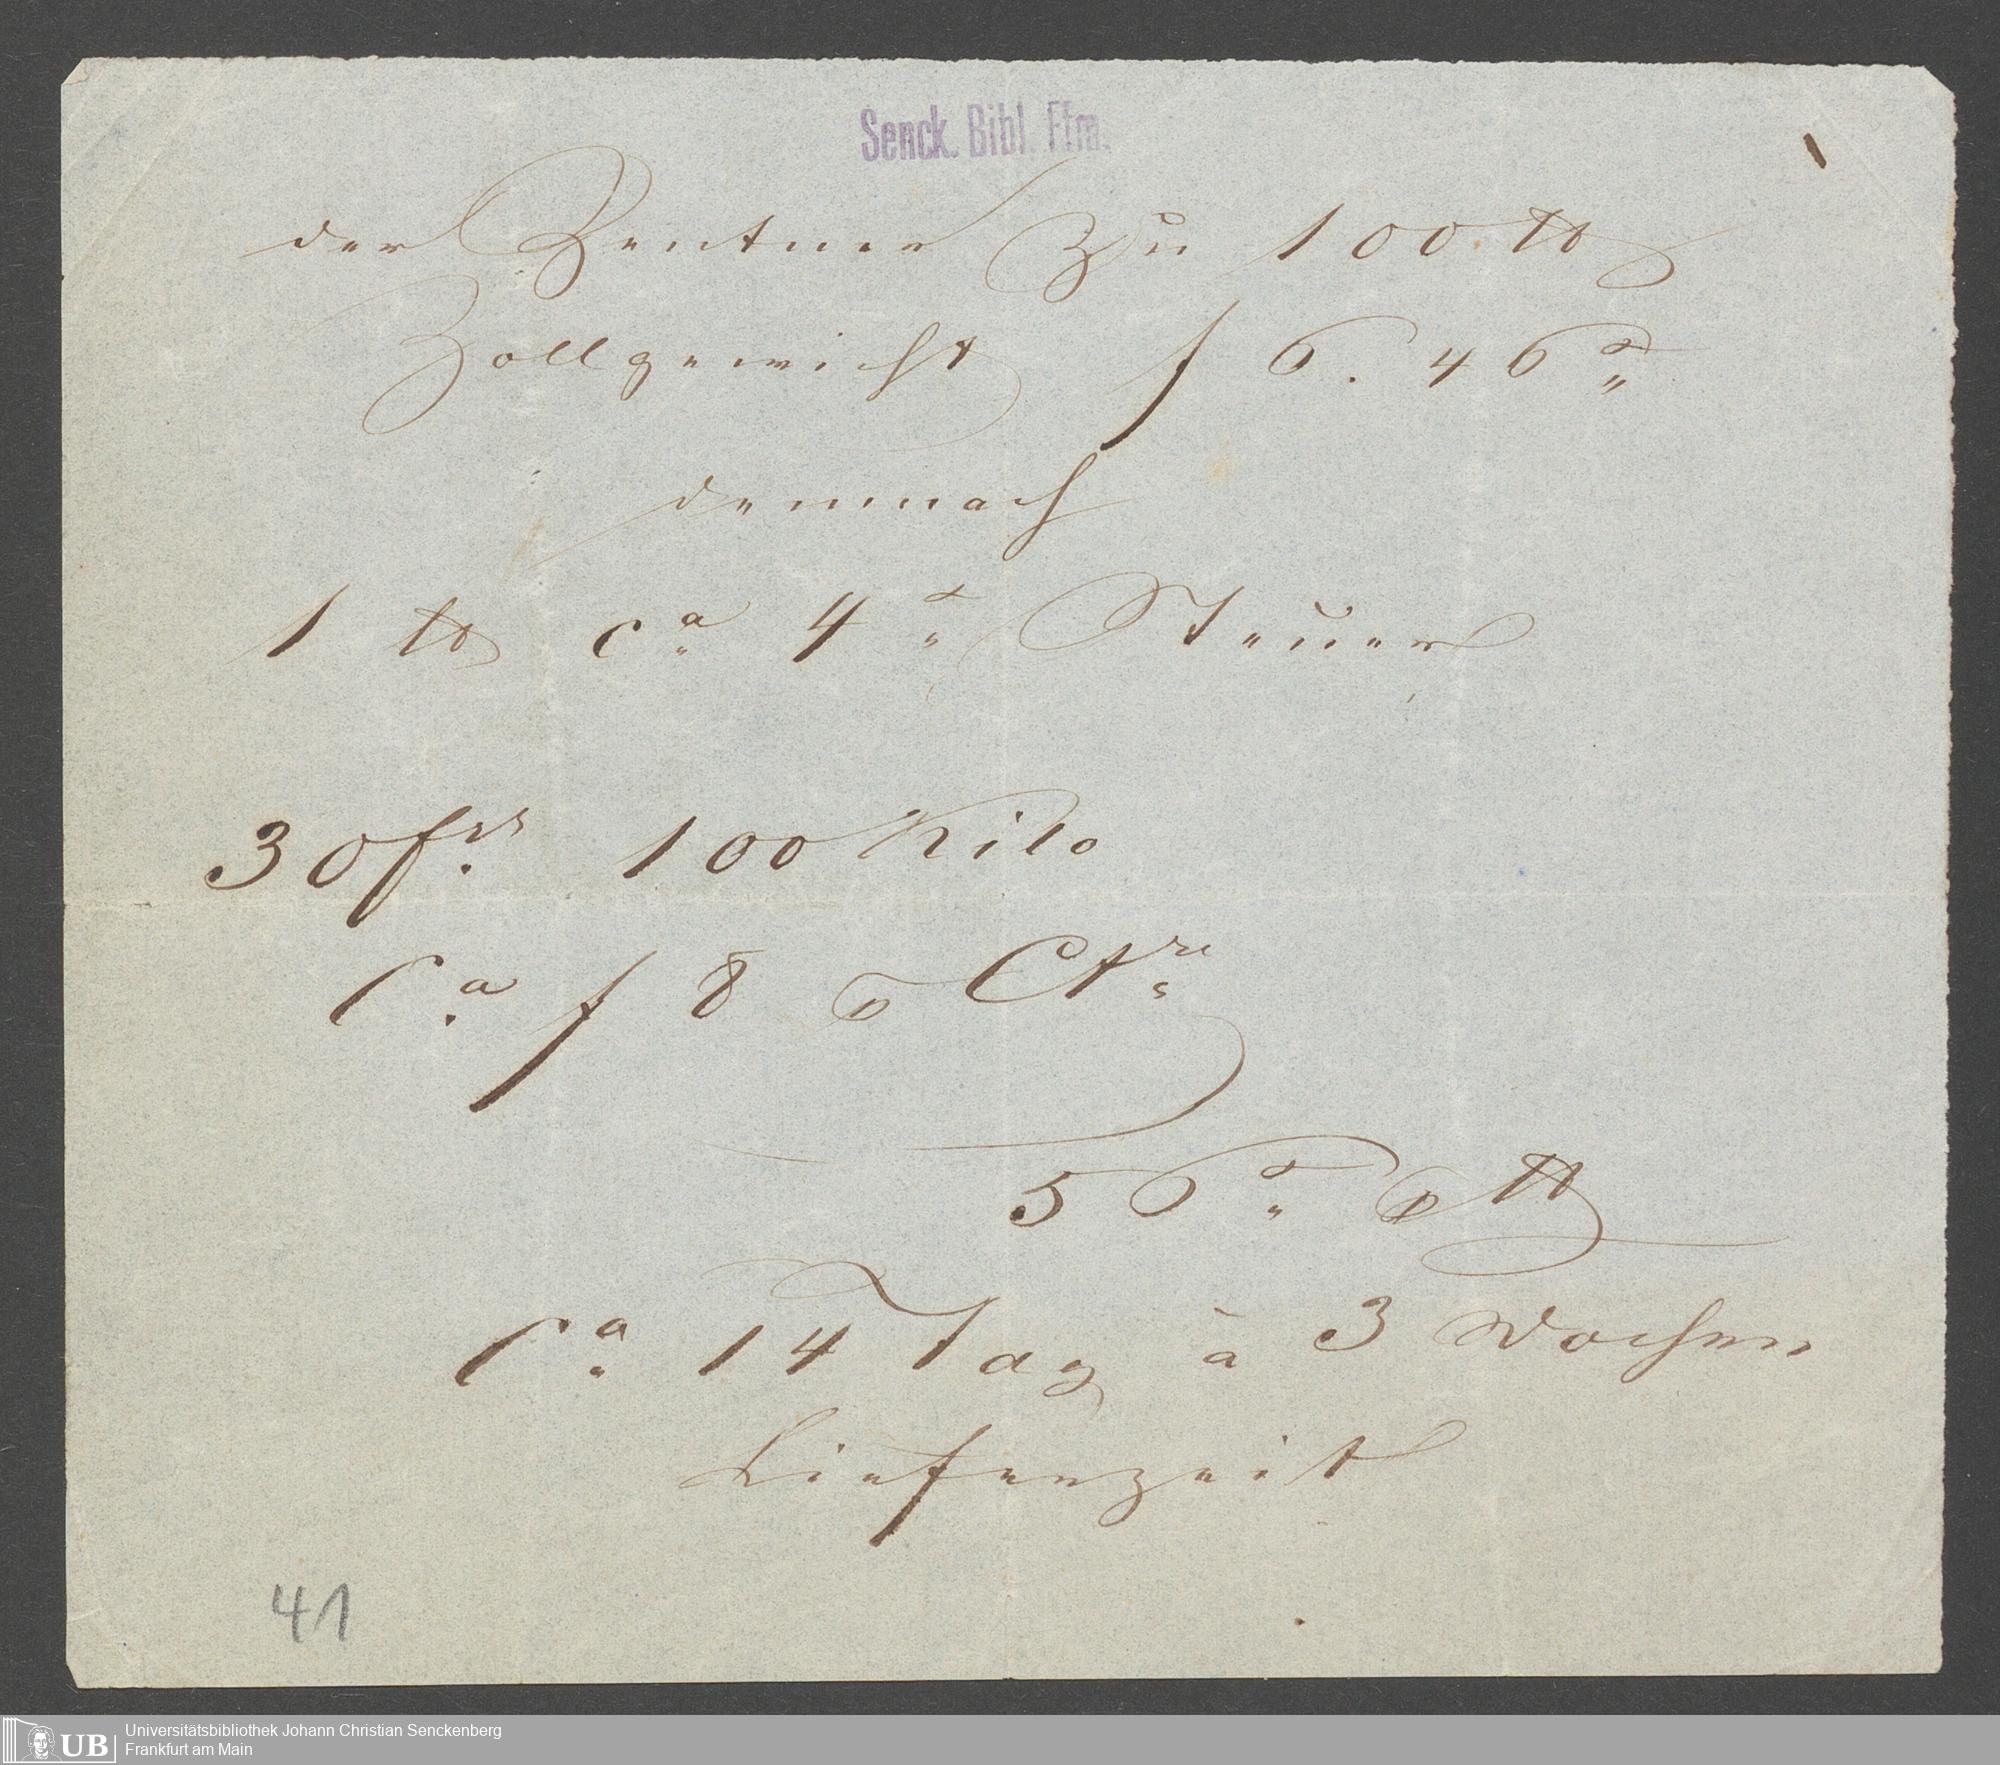 Senck. Bibl. Ffm.
der Zentner zu 100 ℔
Zollgewicht f 6. 46 x
demnach
1 ℔ ca 4 x Steuer
30 frs 100 Kilo
Ca f 8 p Ctr
5 6 x p ℔
Ca 14 Tag à 3 Wochen
Lieferzeit
41
UB Universitätsbibliothek Johann Christian Senckenberg
Frankfurt am Main